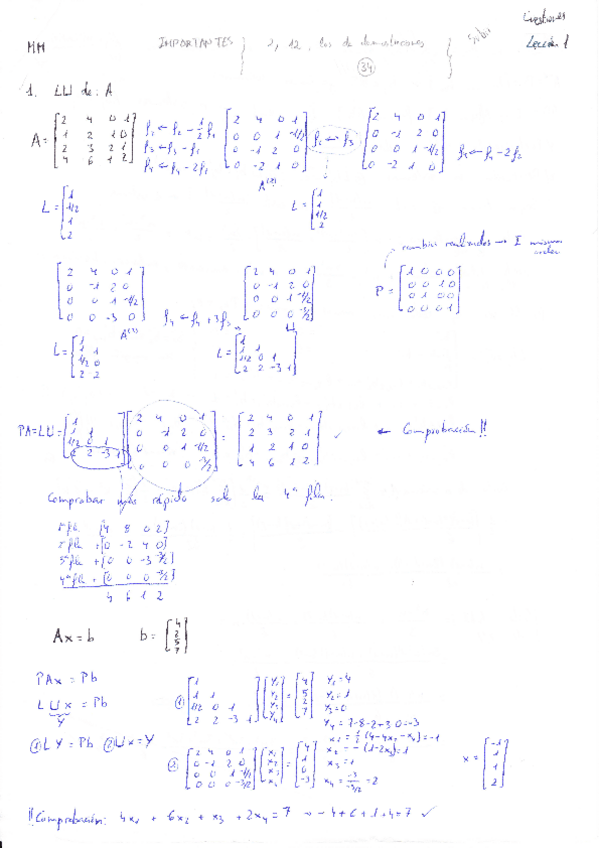 Cuestiones
MM IMPORTANTES } 2, 12, los de demostraciones } Lección 1
34
1. LU de A
A = [2 4 0 1; 1 2 1 0; 2 3 2 1; 4 6 1 2] f₂ ← f₂ - 1/2 f₁ f₃ ← f₃ - f₁ f₄ ← f₄ - 2f₁ [2 4 0 1; 0 0 1 -1/2; 0 -1 2 0; 0 -2 1 0] f₂ ↔ f₃ [2 4 0 1; 0 -1 2 0; 0 0 1 -1/2; 0 -2 1 0] f₄ ← f₄ - 2f₂
A⁽²⁾
L = [1; 1/2; 1; 2] L = [1; 1; 1/2; 2]
cambios realizados → I mismo orden
[2 4 0 1; 0 -1 2 0; 0 0 1 -1/2; 0 0 -3 0] f₄ ← f₄ + 3f₃ [2 4 0 1; 0 -1 2 0; 0 0 1 -1/2; 0 0 0 -3/2] P = [1 0 0 0; 0 0 1 0; 0 1 0 0; 0 0 0 1]
A⁽³⁾ U
L = [1; 1 1; 1/2 0; 2 2] L = [1; 1 1; 1/2 0 1; 2 2 -3 1]
PA = LU = [1; 1 1; 1/2 0 1; 2 2 -3 1] [2 4 0 1; 0 -1 2 0; 0 0 1 -1/2; 0 0 0 -3/2] = [2 4 0 1; 2 3 2 1; 1 2 1 0; 4 6 1 2] ✓ ← Comprobación!!
Comprobar más rápido sol la 4ª fila:
1ª fila [4 8 0 2]
2ª fila + [0 -2 4 0]
3ª fila + [0 0 -3 3/2]
4ª fila + [0 0 0 -3/2]
4 6 1 2
Ax = b b = [4; 2; 5; 7]
PAx = Pb
L U x = Pb
Y
① LY = Pb ② Ux = Y
① [1; 1 1; 1/2 0 1; 2 2 -3 1] [Y₁; Y₂; Y₃; Y₄] = [4; 5; 2; 7] Y₁ = 4
Y₂ = 1
Y₃ = 0
Y₄ = 7-8-2+3·0 = -3
② [2 4 0 1; 0 -1 2 0; 0 0 1 -1/2; 0 0 0 -3/2] [x₁; x₂; x₃; x₄] = [4; 1; 0; -3] x₁ = 1/2 (4-4x₂-x₄) = -1
x₂ = -(1-2x₃) = 1
x₃ = 1
x₄ = -3/(-3/2) = 2
x = [-1; 1; 1; 2]
!! Comprobación: 4x₁ + 6x₂ + x₃ + 2x₄ = 7 → -4+6+1+4=7 ✓